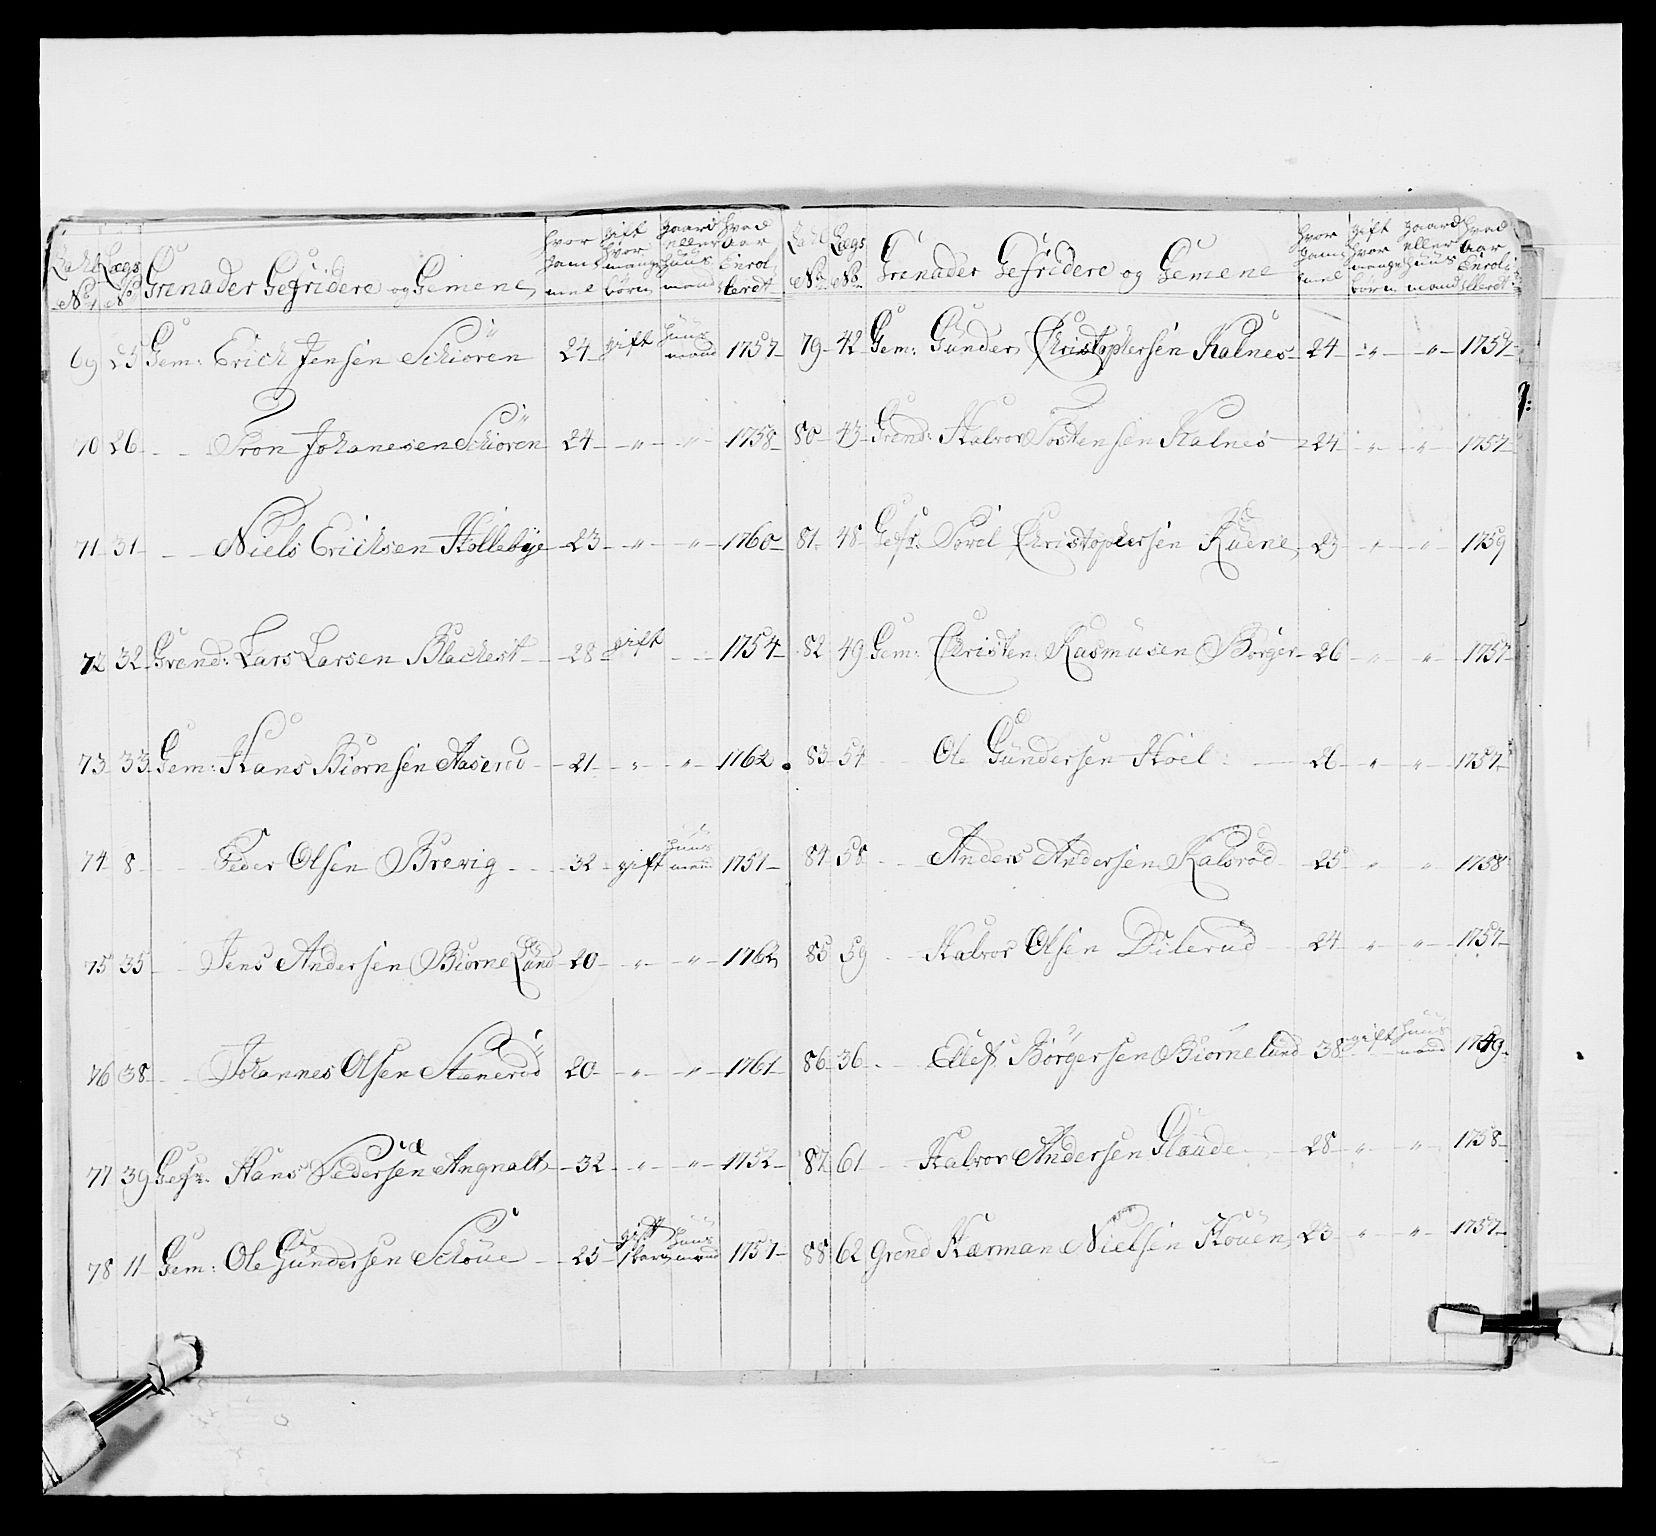 Lægs No Grenader Gefridere og Gemene hvor gammel gift hvor mange børn gaard eller huus mand hvad Aar Enrollerdt
69 25 Gem: Erich Jensen Schiøren 24 gift huus mand 1757
70 26 - - Tron Johanesen Schiøren 24 " " 1758
71 31 - - Niels Ericksen Hollebye 23 " " 1760
72 32 Grend: Lars Larsen Blacherst 28 gift - - 1754
73 33 Gem: Hans Biørnsen Aaserud 21 " " 1762
74 8 - - Peder Olsen Brevig 32 gift huus mand 1751
75 35 - - Jens Andersen Biørne Lund 20 " " 1762
76 38 - - Johannes Olsen Stenerüd 20 " " 1761
77 39 Gefr. Hans Pedersen Angnalt 32 " " 1752
78 11 Gem: Ole Gundersen Schoue 25 gift 1 barn huus mand 1757
Lægs No Grenader Gefridere og Gemene hvor gammel gift hvor mange børn gaard eller huus mand hvad Aar Enrollerdt
79 42 Gem: Gunder Christophersen Kalnes 24 " " 1757
80 43 Grend: Halvor Tostensen Kalnes 24 " " 1757
81 48 Gefr. Povel Christophersen Ruene 23 " " 1759
82 49 Gem: Christen Rasmusen Borger 26 " " 1757
83 54 Ole Gundersen Hoel 26 " " 1757
84 58 - - Anders Andersen Kalsrød 25 " " 1758
85 59 - Halvor Olsen Dilerud 24 " " 1757
86 36 - - Ellef Børgersen Biørnelund 38 gift huus mand 1749
87 61 - - Halvor Andersen Glaude 28 " " 1758
88 62 Grend Herman Nielsen Houen 23 " " 1757